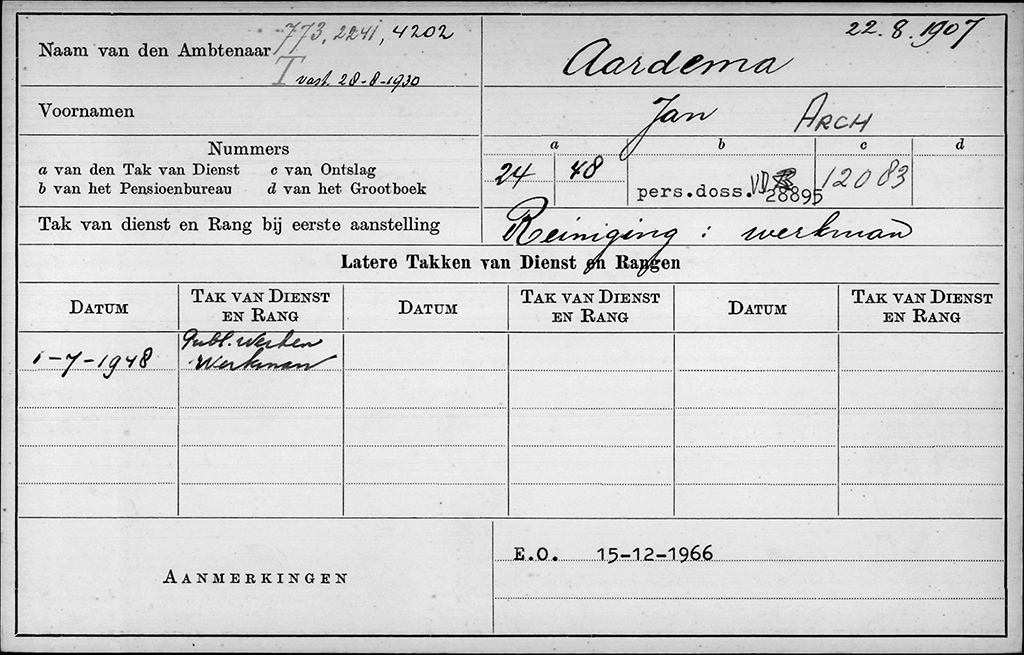 22.8.1907
Naam van den Ambtenaar 773, 2241, 4202 Aardema
T vast. 28-8-1930
Voornamen Jan ARCH
Nummers
a b c d
a van den Tak van Dienst c van Ontslag
b van het Pensioenbureau d van het Grootboek
24 48 pers.doss. VD 28895 12083
Tak van dienst en Rang bij eerste aanstelling Reiniging : werkman
Latere Takken van Dienst en Rangen
DATUM TAK VAN DIENST EN RANG DATUM TAK VAN DIENST EN RANG DATUM TAK VAN DIENST EN RANG
Publ. Werken
1-7-1948 Werkman
AANMERKINGEN
E.O. 15-12-1966